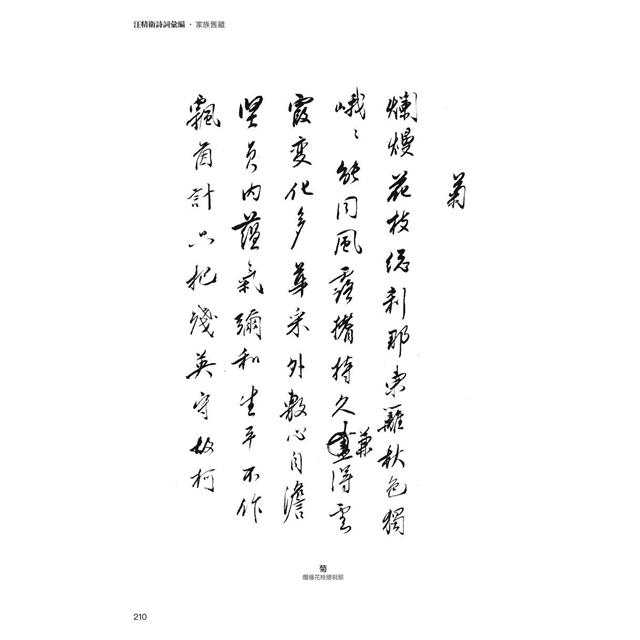 汪精衛詩詞彙編 · 家族舊藏
菊
爛熳花枝總刹那東籬秋色獨
峨〻能同風露撐持久兼得雲
霞變化多華采外敷心自澹
堅貞內蘊氣彌和生平不作
飄茵計只把殘英守故柯
菊
爛熳花枝總剎那
210